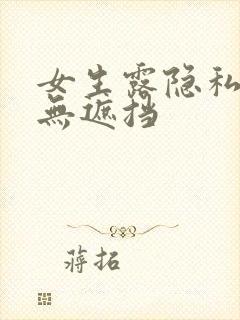 女生露隐私
無遮挡
蔣拓